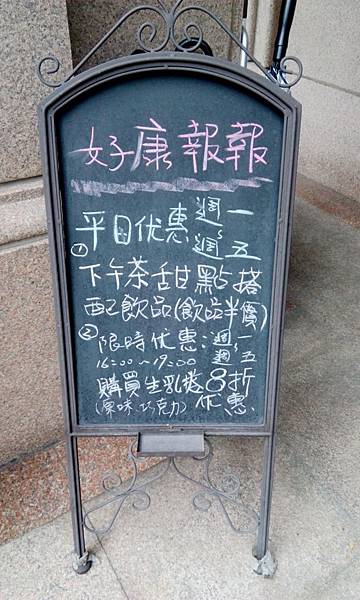 好康報報
①平日优惠 週一~週五
下午茶甜點搭
配飲品(飲品半價)
②限時优惠:週一~週五
16:00~19:00
購買生乳捲8折
(原味、巧克力) 优惠